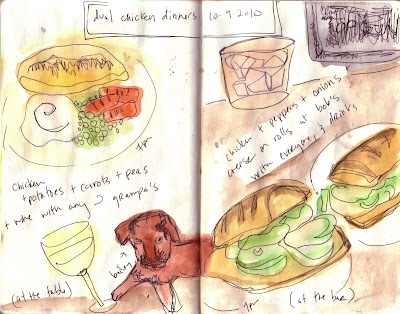 dual chicken dinners 10·9 2010
1pm
chicken
+ potatoes + carrots + peas
+ wine with amy grampa's
(at the table)
chicken + peppers + onions
cheese on rolls at bob's
with everyone drinks
7pm
(at the bar)